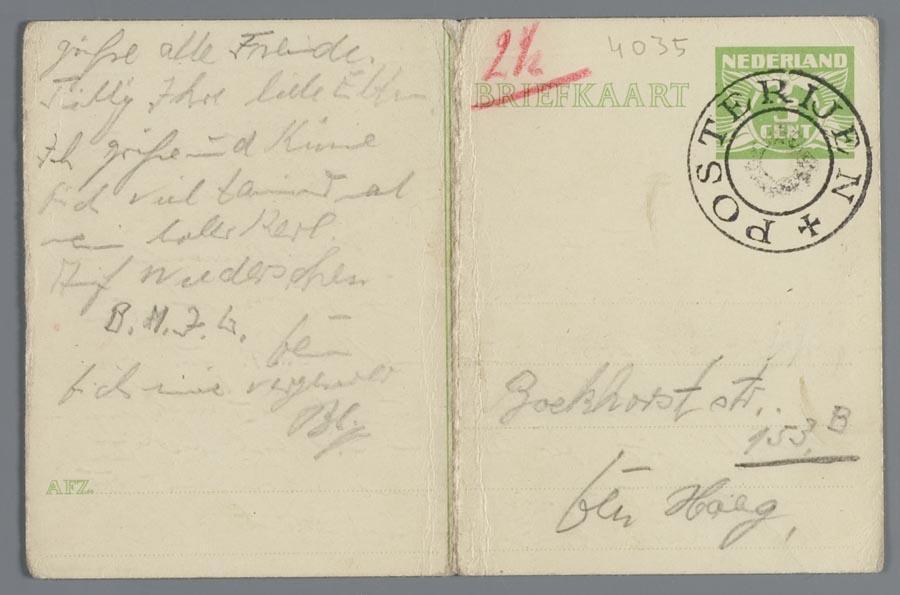 grüße alle Freunde.
Tally Ihre liebe Eltern
Ich grüße und Küsse
Dich viel tausend mal
mein toller Kerl.
Auf Wiedersehen
B. M. Z. W.
Dich nie vergessen
AFZ.
2½
4035
BRIEFKAART
NEDERLAND
CENT
POSTERIJEN
Boekhorst str.
153, B
Den Haag,